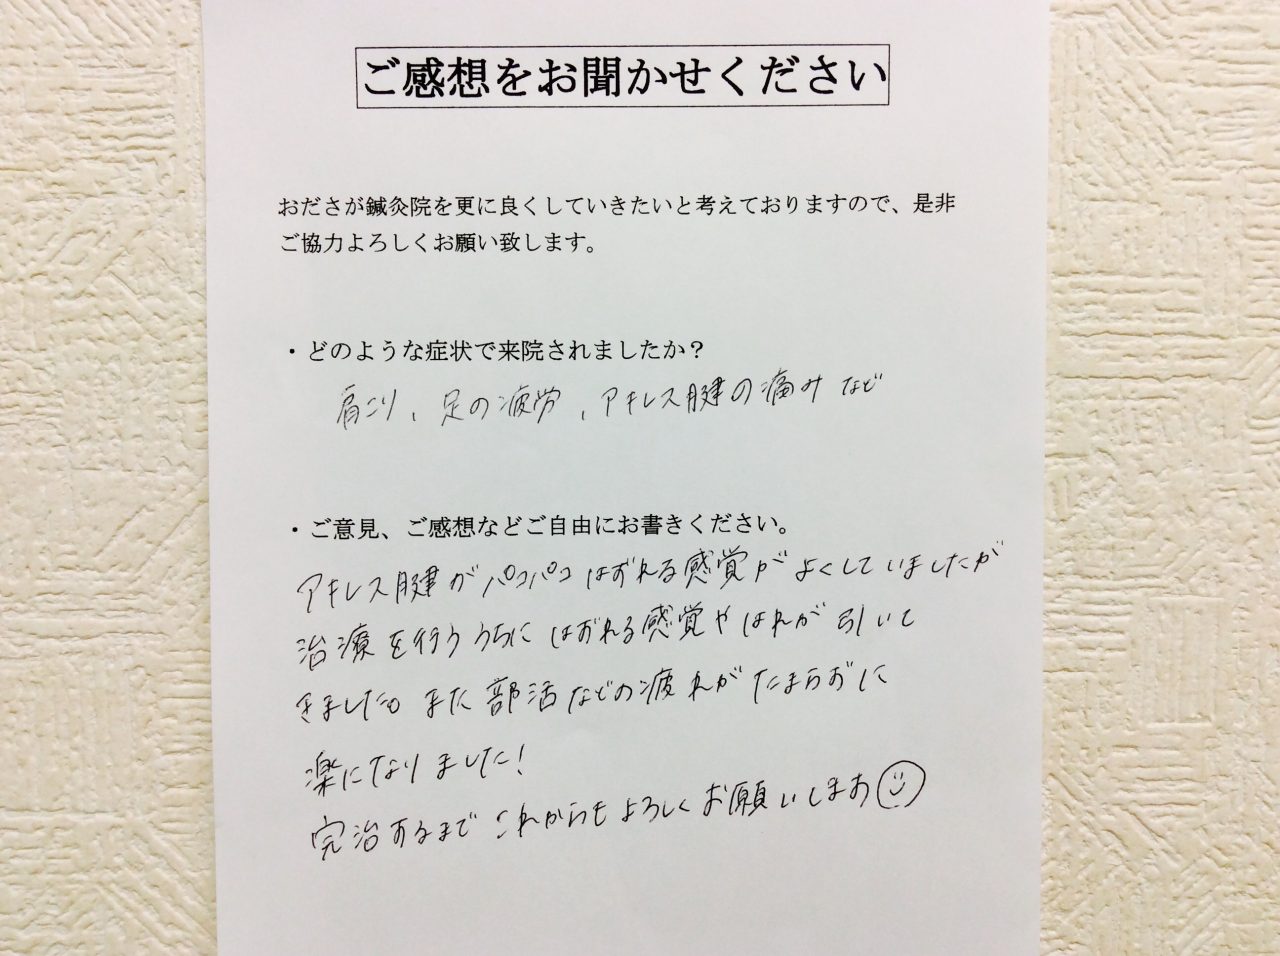 ご感想をお聞かせください
おださが鍼灸院を更に良くしていきたいと考えておりますので、是非
ご協力よろしくお願い致します。
・どのような症状で来院されましたか？
肩こり、足の疲労、アキレス腱の痛みなど
・ご意見、ご感想などご自由にお書きください。
アキレス腱がパコパコはずれる感覚がよくしていましたが
治療を行ううちにはずれる感覚やはれが引いて
きました。また部活などの疲れがたまらずに
楽になりました!
完治するまでこれからもよろしくお願いします☺